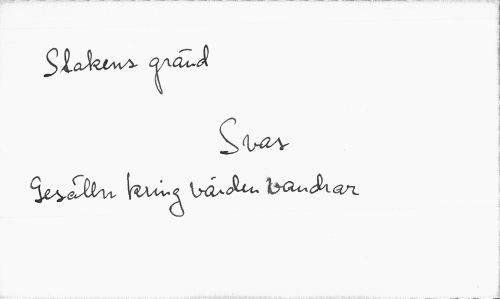 Stakens gränd
Svas
Gesällen kring världen vandrar